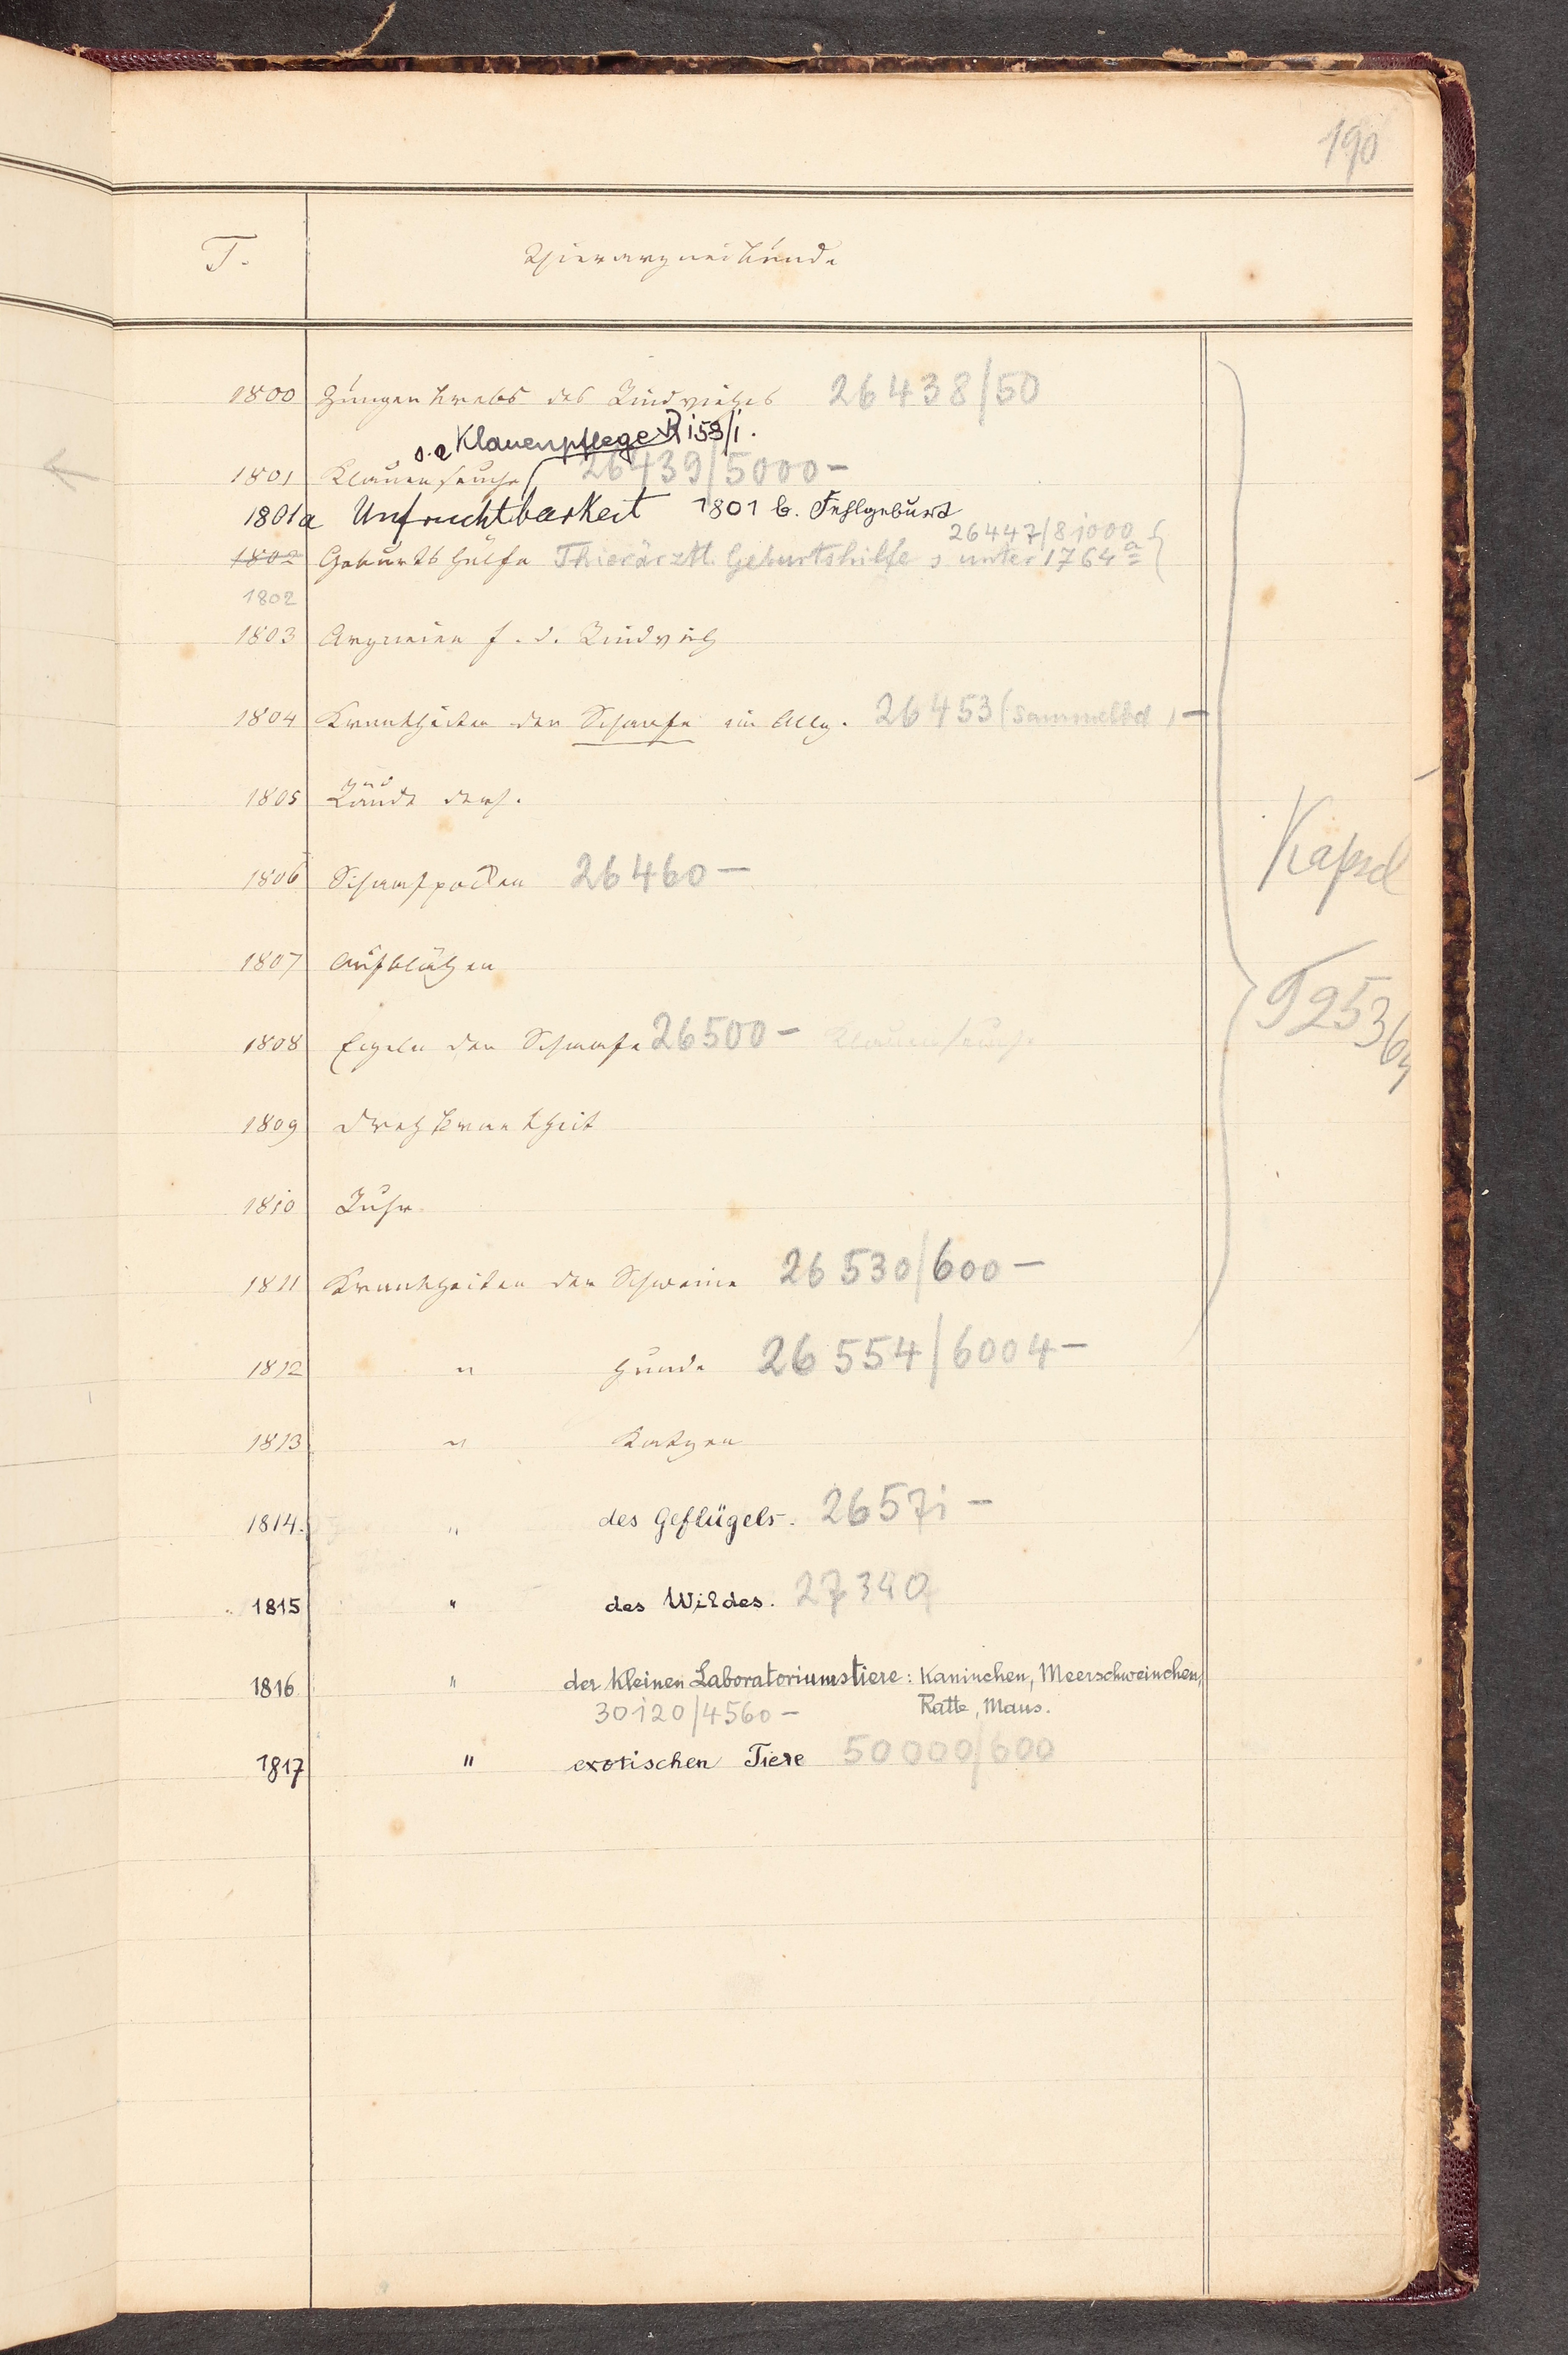 190
T. Thierarzneikunde
1800 Zungenkrebs des Rindviehes 26438/50
s. a Klauenpflege R 153/i.
1801 Klauenseuche 26439/5000 –
1801a Unfruchtbarkeit 1801 b. Fehlgeburt
26447/81000
1802 Geburtshülfe Thierärztl. Geburtshilfe s unter 1764a
1802
1803 Arzneien f. d. Rindvieh
1804 Krankheiten der Schaafe im Allg. 26453 (Sammelbd) –
1805 Räude ders.
1806 Schafpocken 26460 –
1807 Aufblähen
1808 Egeln der Schaafe 26500 – Klauenseuche
1809 Drehkrankheit
1810 Ruhr
1811 Krankheiten der Schweine 26530/600 –
1812 " Hunde 26554/6004 –
1813 " Katzen
1814. " des Geflügels. 26571 –
1815 " des Wildes. 27340
1816 " der kleinen Laboratoriumstiere: Kaninchen, Meerschweinchen,
30120/4560 – Ratte, Maus.
1817 " exotischen Tiere 50000/600
Kapsel
T 253